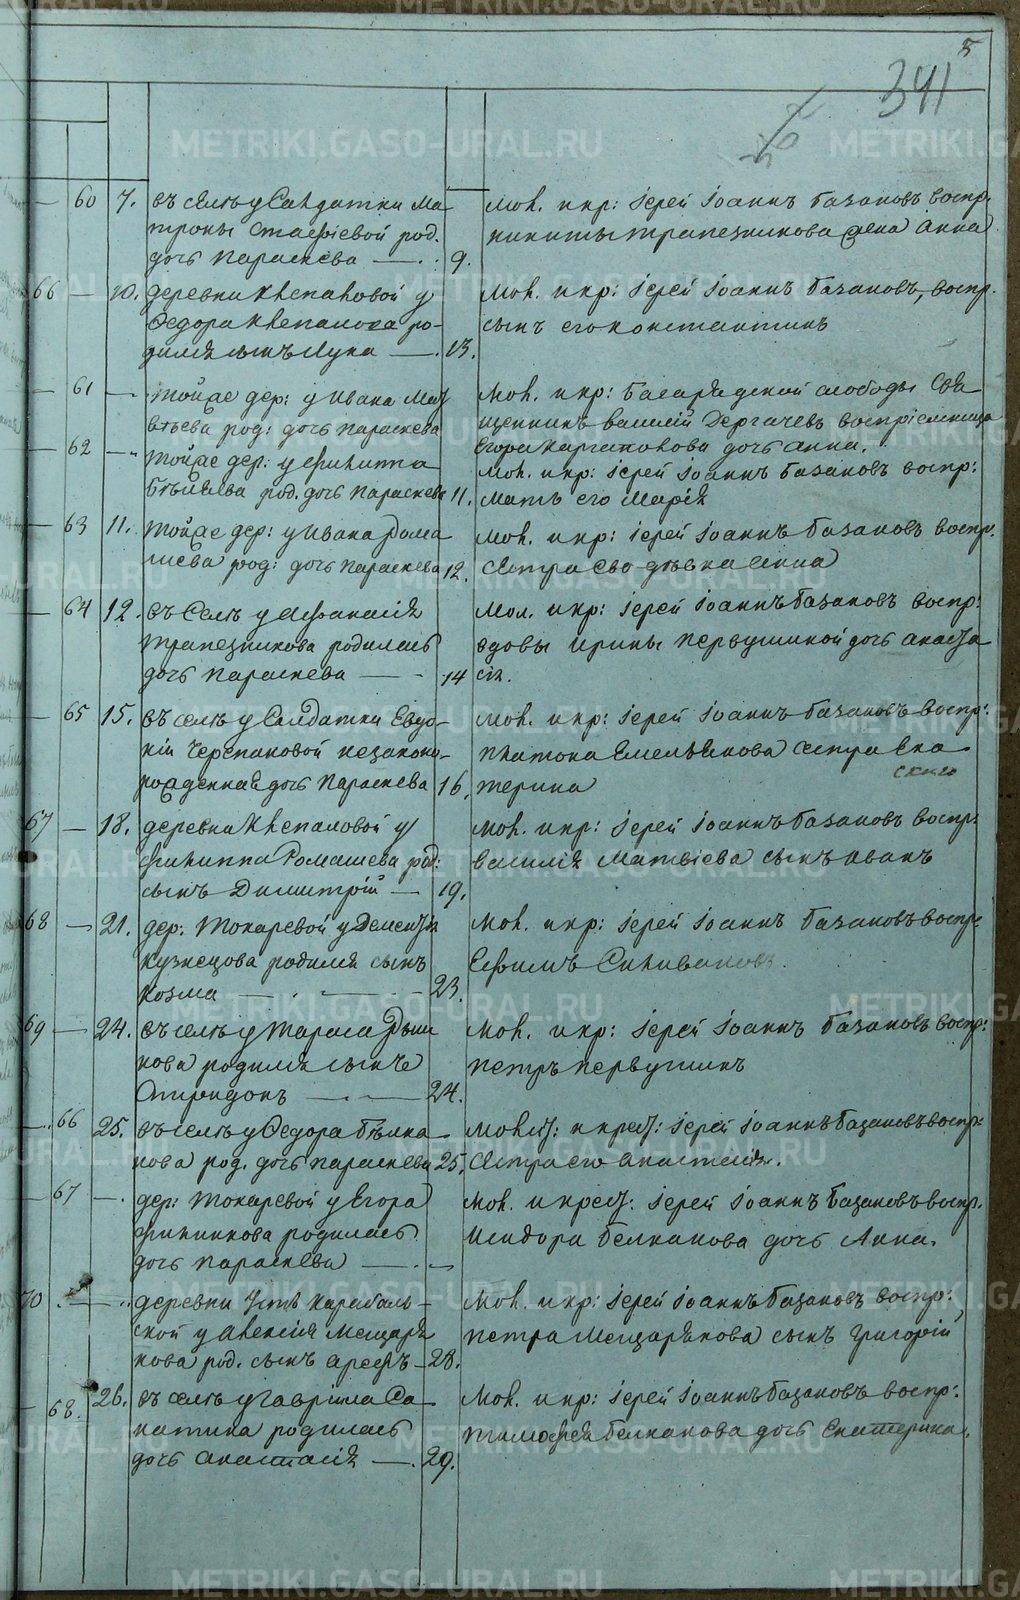 5
341
60 7. въ селѣ у Салдатки Ма
троны Стаеріевой род.
дочь Параскева 9.
Мол. и кр: Іерей Іоаннъ Базановъ воспр.
Никиты Трапезникова жена Анна
66 10. деревни Клепаловой у
Федора Клепалова ро-
дился сынъ Лука 13.
Мол. и кр: Іерей Іоаннъ Базановъ, воспр.
сынъ его Константинъ
61 тойже дер: у Ивана Мат
вѣева род: дочь Параскева
Мол. и кр: Багарядской слободы Свя
щенникъ Василій Дергачевъ воспріемница
Егора Харитонова дочь Анна.
62 тойже дер: у Филиппа
род. дочь Параскева 11.
Мол. и кр: Іерей Іоаннъ Базановъ воспр:
Мать его Марія
63 11. тойже дер: у Ивана Рома
шева род: дочь Параскева 12.
Мол. и кр: Іерей Іоаннъ Базановъ воспр.
Сестра Его дѣвка Анна
64 12. въ Селѣ у Афанасія
Трапезникова родилась
дочь Параскева 14
Мол. и кр: Іерей Іоаннъ Базановъ воспр:
вдовы Ирины Первушиной дочь Анаста
сія.
65 15. въ селѣ у Салдатки Евдо-
кіи Черепановой незаконно-
рожденная дочь Параскева 16.
Мол. и кр: Іерей Іоаннъ Базановъ воспр:
Платона Емельянова сестра Ека
терина
67 18. деревни Клепаловой у
Филиппа Ромашева род:
сынъ Димитрій 19.
Мол. и кр: Іерей Іоаннъ Базановъ воспр:
Василія Матвіева сынъ Иванъ
68 21. дер: Токаревой у Дементія
Кузнецова родился сынъ
Козма 23.
Мол. и кр: Іерей Іоаннъ Базановъ воспр:
Ефимъ Селивановъ.
69 24. въ селѣ у Тараса
родился сынъ
Спиридонъ 24.
Мол. и кр: Іерей Іоаннъ Базановъ воспр:
Петръ Первушинъ
66 25. въ селѣ у Федора Бѣлка
нова род. дочь Параскева 25.
Молит: и крест: Іерей Іоаннъ Базановъ воспр:
Сестра его Анастасія.
67 дер: Токаревой у Егора
Филинкова родилась
дочь Параскева
Мол. и крест: Іерей Іоаннъ Базановъ воспр.
Исидора Белканова дочь Анна.
70 деревни Усть Караболь-
ской у Алексія Мещаря
кова род. сынъ Арефъ 28.
Мол. и кр: Іерей Іоаннъ Базановъ воспр:
Петра Мещарякова сынъ Григорій
68. 26. въ селѣ у Гавріила Са
латина родилась
дочь Анастасія 29.
Мол. и кр: Іерей Іоаннъ Базановъ воспр:
Тимофея Белканова дочь Екатерина.
METRIKI.GASO-URAL.RU